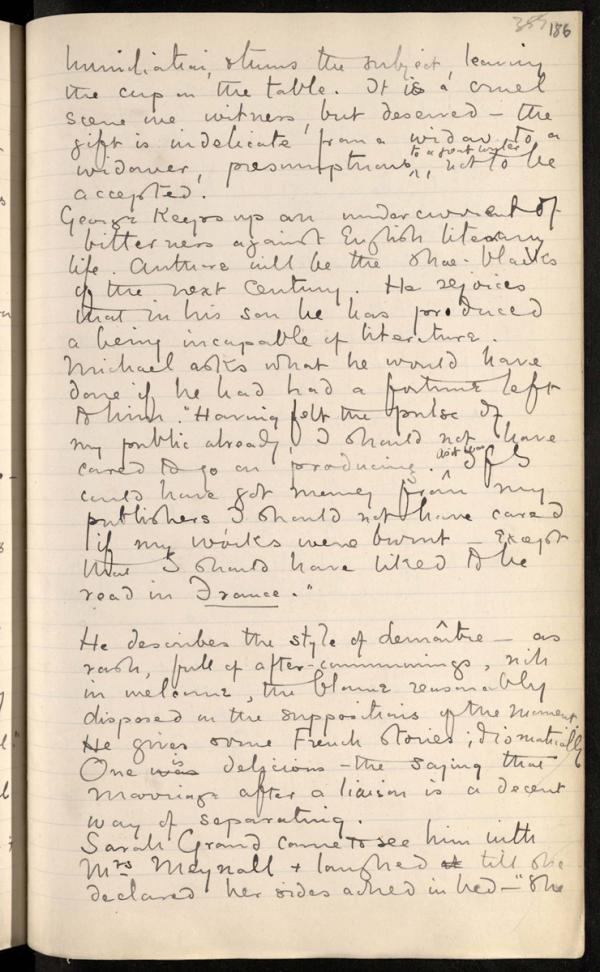 355 186
humiliation, shuns the subject, leaving
the cup on the table. It is a cruel
scene we witness, but deserved – the
gift is indelicate from a widow to a
to a great writer
widower, presumptuous, not to be
accepted.
George keeps up an undercurrent of
bitterness against English literary
life. Authors will be the shoe-blacks
of the next century. He rejoices
that in his son he has produced
a being incapable of literature.
Michael asks what he would have
done if he had had a fortune left
to him. "Having felt the pulse of
my public already, I should not have
cared to go on producing. If I
could have got money from my
publishers I should not have cared
if my works were burnt – except
that I should have liked to be
read in France."
He describes the style of Lemâitre – as
rash, full of after-communings, rich
in welcome, the blame reasonably
disposed on the suppositions of the moment.
He gives some French stories; dramatically
One is delicious – the saying that
marriage after a liaison is a decent
way of separating.
Sarah Grand came to see him with
Mrs Meynell + laughed till she
declared her sides ached in bed – "She